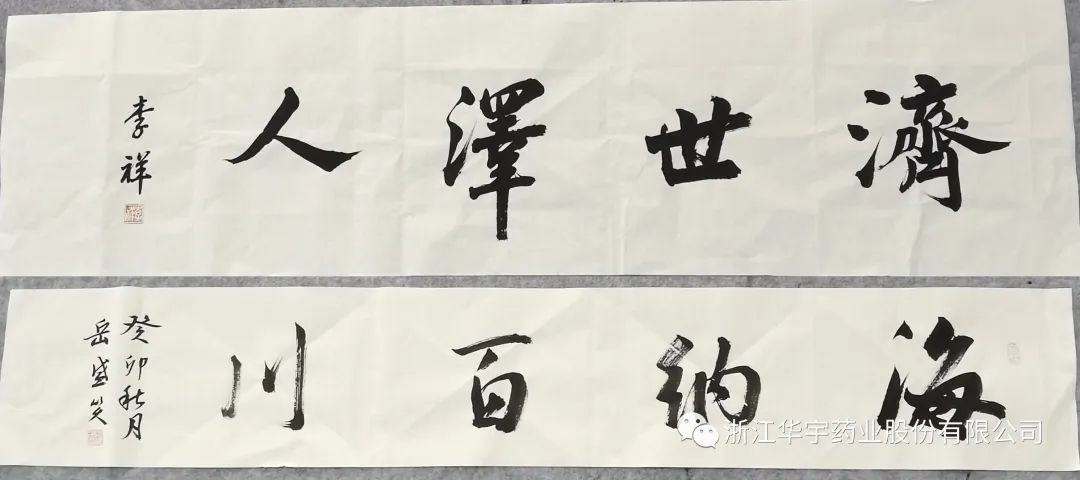 濟世澤人
李祥
海納百川
癸卯秋月
岳盛笑
浙江华宇药业股份有限公司